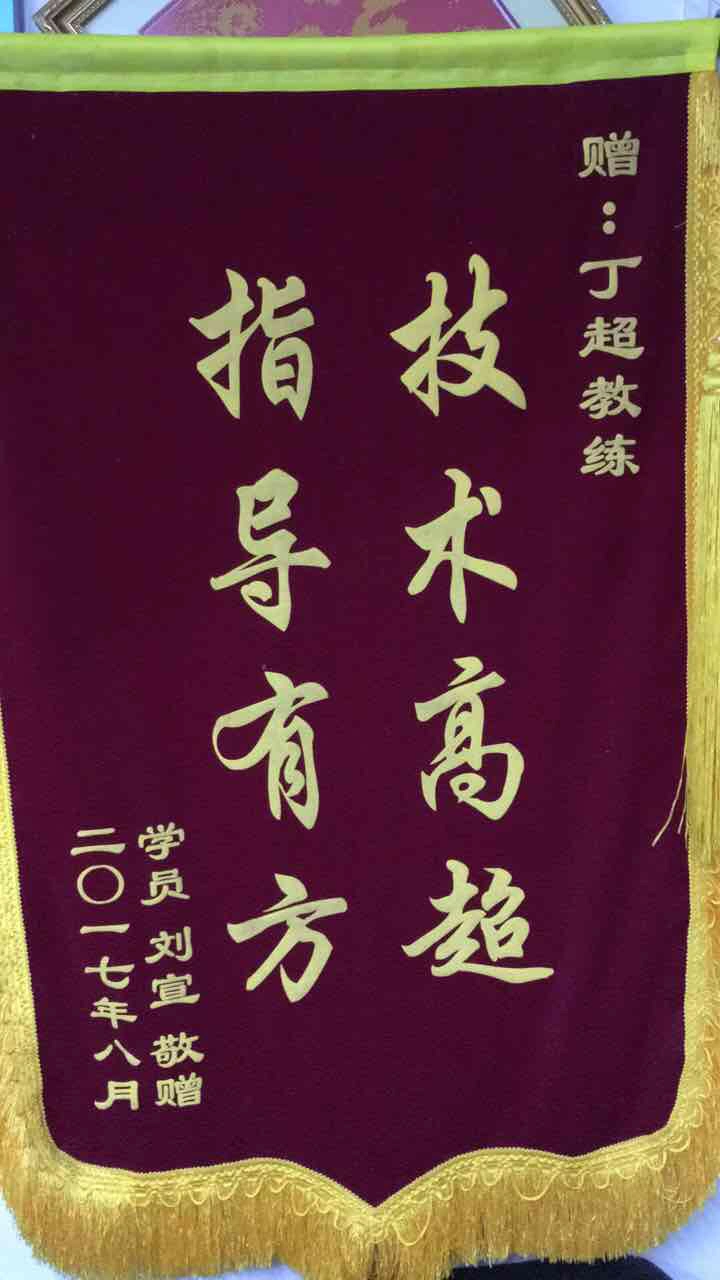 赠：丁超教练
技术高超
指导有方
学员 刘宣 敬赠
二〇一七年八月